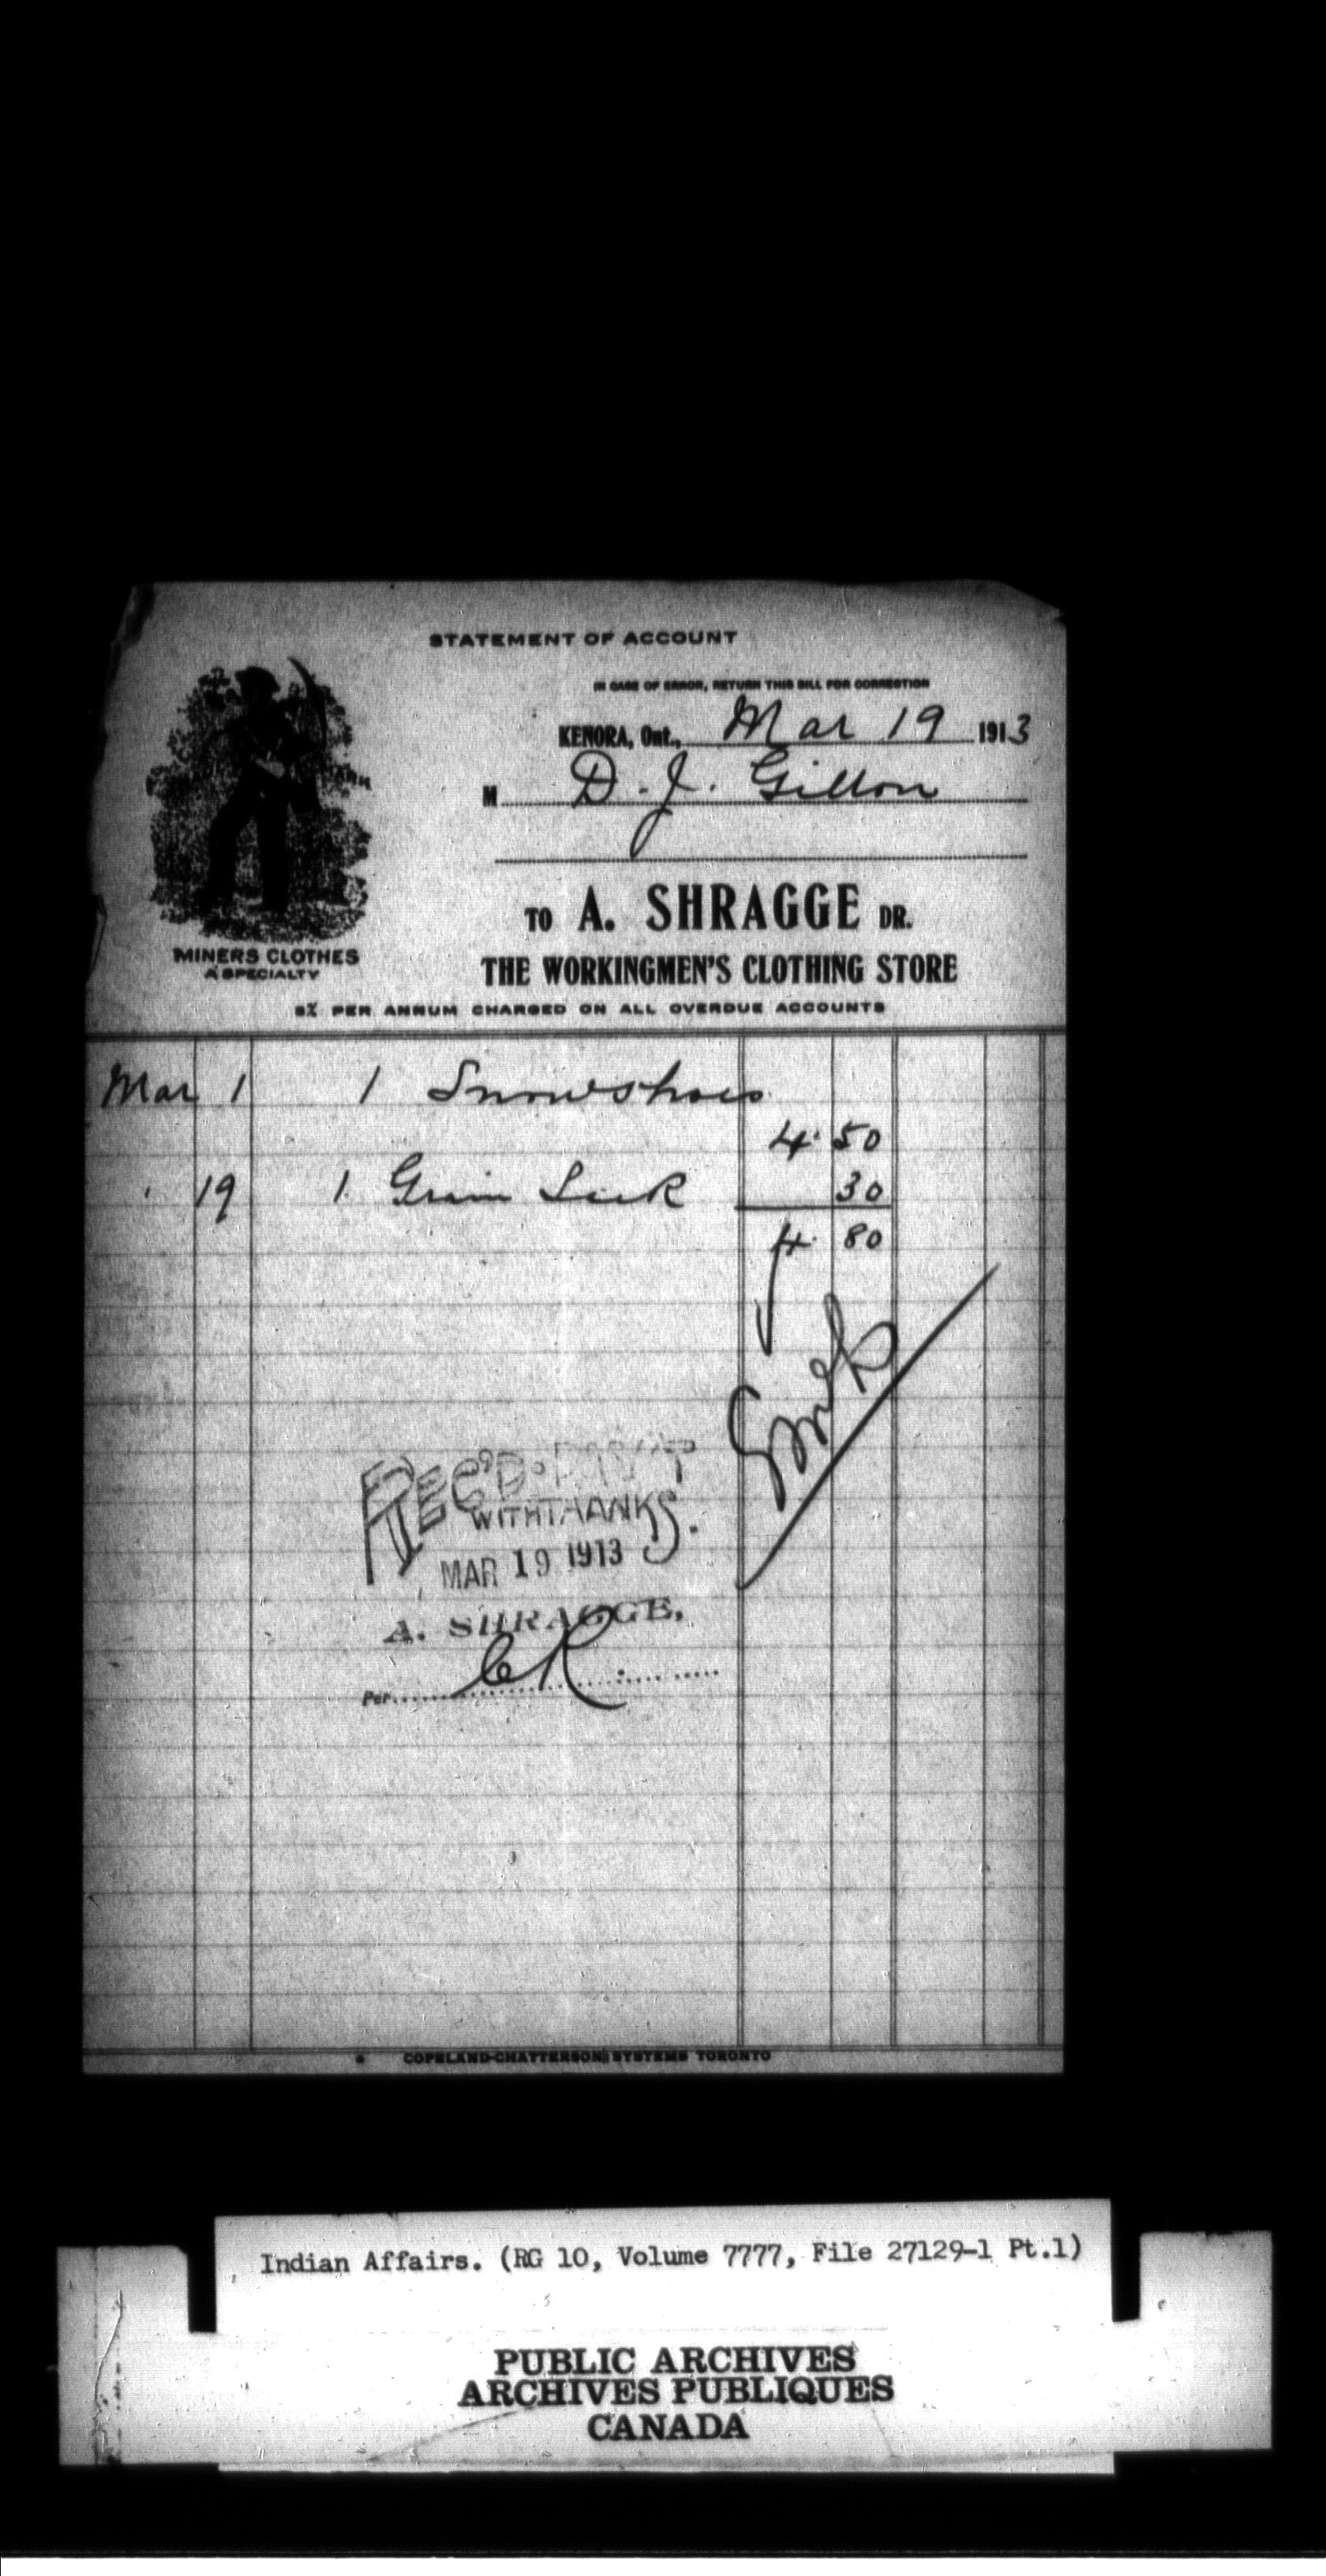 STATEMENT OF ACCOUNT
IN CASE OF ERROR, RETURN THIS BILL FOR CORRECTION
KENORA, Ont., Mar 19 1913
M D. J. Gillon
TO A. SHRAGGE DR.
THE WORKINGMEN'S CLOTHING STORE
MINERS CLOTHES
A SPECIALTY
8% PER ANNUM CHARGED ON ALL OVERDUE ACCOUNTS
Mar 1 1 Snowshoes
4.50
" 19 1 Grain Sack 30
4.80
REC'D. PAY'T
WITH THANKS.
MAR 19 1913
A. SHRAGGE,
Per CK
COPELAND-CHATTERSON SYSTEMS TORONTO
Indian Affairs. (RG 10, Volume 7777, File 27129-1 Pt.1)
PUBLIC ARCHIVES
ARCHIVES PUBLIQUES
CANADA